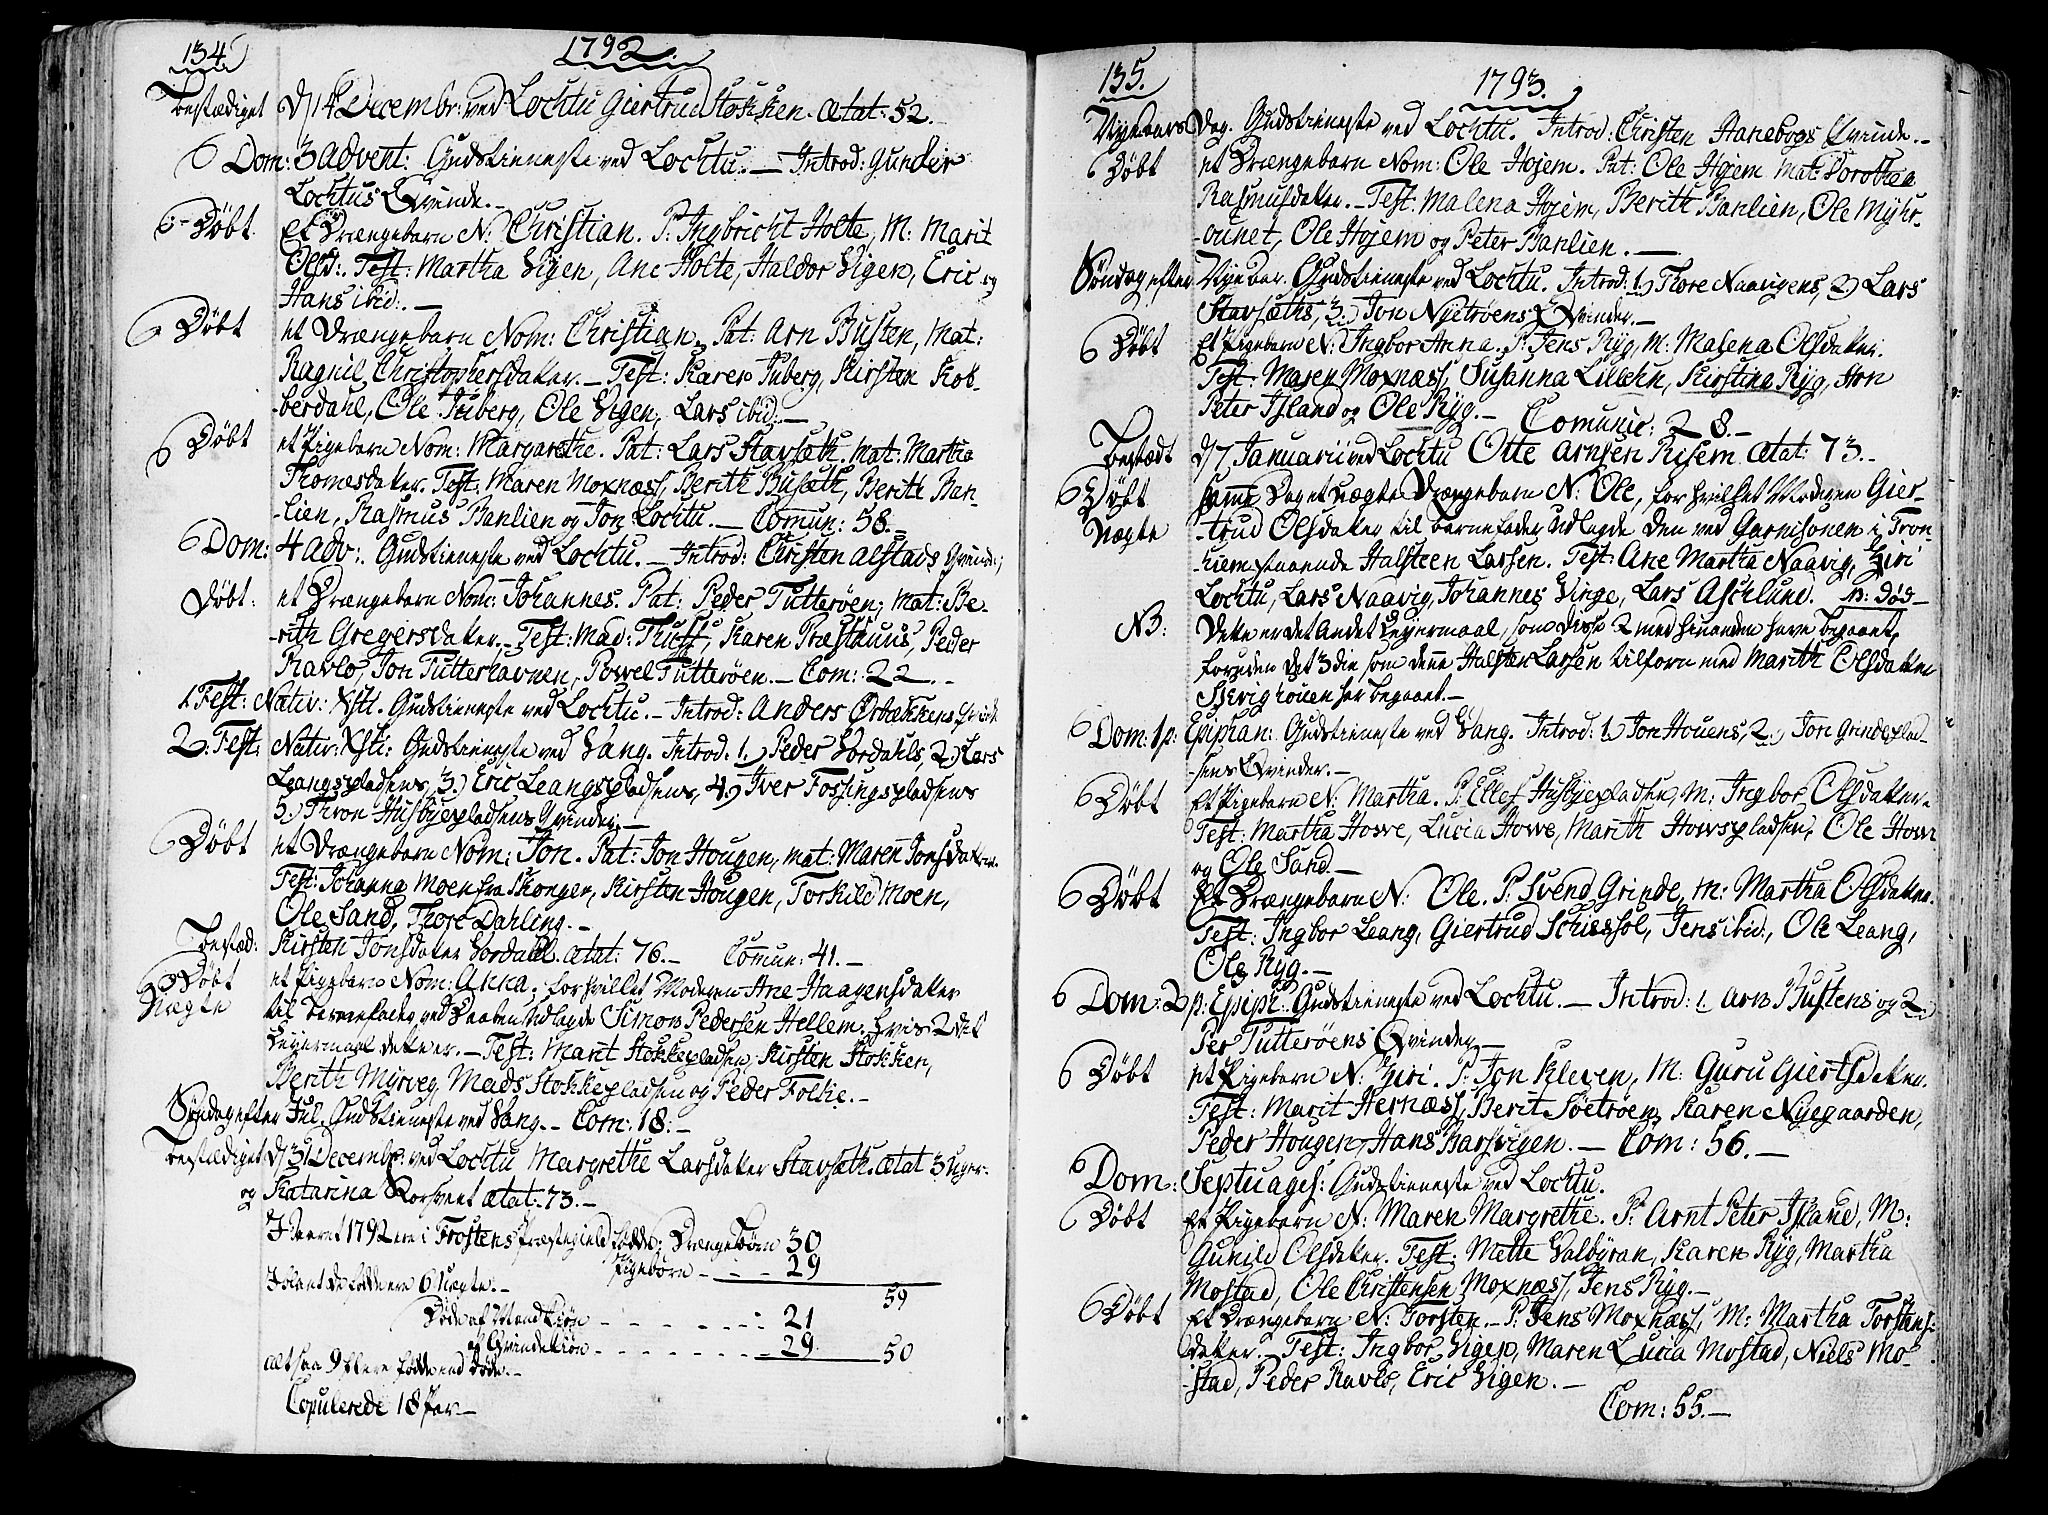 134.
1792.
Bestædiget d/14 Decembr: ved Lochtu Giertrud Stokken. Ætat: 52.
Dom: 3 Advent: Gudstienneste ved Lochtu. — Introd: Gunder
Lochtus Qvinde. —
Døbt. et Drængebarn N: Christian. P: Ingbricht Holte, M: Marit
Olsd:. Test: Martha Vigen, Ane Holte, Haldor Vigen, Eric og
Hans ibid:. —
Døbt et Drængebarn Nom: Christian. Pat: Arn Busten, Mat:
Ragnil Christophersdatter. — Test: Karen Juberg, Kirsten Kob-
-berdahl, Ole Juberg, Ole Vigen, Lars ibid. —
Døbt et Pigebarn Nom: Margarethe. Pat: Lars Stavsæth. Mat: Martha
Thomesdatter. Test: Maren Moxness, Berith Busæth, Berith Ban-
-lien, Rasmus Banlien og Jon Lochtu. — Commun: 58. —
Dom: 4 Adv:. Gudstienneste ved Lochtu. — Introd: Christen Alstads Qvinde;
Døbt: et Drængebarn Nom: Johannes. Pat: Peder Tutterøen; Mat: Be-
-rith Gregersdatter. — Test: Mad: Thuss, Karen Præstauns, Peder
Ravlo, Jon Tutterhavnen, Powel Tutterøen. — Com: 22. —
1. Fest: Nativ: Xsti. Gudstienneste ved Lochtu. — Introd: Anders Østækkens Qvinde
2: Fest: Nativ: Xsti: Gudstienneste ved Vang. Introd: 1. Peder Vordahls, 2) Lars
Leangspladsens, 3.) Eric Leangspladsens, 4.) Iver Fossingspladsens
5.) Thron Husbyepladsens Qvinder. —
Døbt et Drængebarn Nom: Jon. Pat: Jon Hougen, Mat: Maren Jonsdatter.
Test: Johanna Moen fra Skongen, Kirsten Hougen, Torkild Moen,
Ole Sand, Thore Dahling. —
Bestæd: Kirsten Jonsdatter Vordahl. Ætat: 76. — Commun: 41. —
Døbt et Pigebarn Nom: Anna. for hvilket Moderen Ane Haagensdatter
Uægte til Barnefader ved Daaben Udlagde Simon Pedersen Hellem. hvis 2det
Leyermaal dette er. — Test: Marit Stokkepladsen, Kirsten Stokken,
Berith Myrveg, Mads Stokkepladsen og Peder Folkie. —
Søndag efter Jul, Gudstienneste ved Vang. — Com: 18: —
Bestædiget d/31 Decembr: ved Lochtu Margrethe Larsdatter Stavsæth. Ætat 3 Uger.
og Katarina Korsvent Ætat: 73. —
I Aaret 1792 ere i Frostens Præstegield fødde: Drængebørn 30
Pigebørn — 29
Iblant de fødde ere 6 Uægte. — 59
Døde af Mandkiøn - - - - 21
af Qvindekiøn - - - - 29. 50
altsaa 9 flere fødde end døde. —
Copulerede 18 Par —
135.
1793.
Nyeaars Dag. Gudstienneste ved Lochtu. Introd: Christen Hanebogs Qvinde. —
Døbt et Drængebarn Nom: Ole Hojem. Pat: Ole Hojem Mat: Dorothea
Rasmusdatter. — Test: Malena Hojem, Berith Banlien, Ole Myhr-
-ounet, Ole Hojem og Peter Banlien. —
Søndag efter Nyeaar. Gudstienneste ved Lochtu. Introd: 1. Thore Naavigens, 2.) Lars
Stavsæths, 3.) Jon Nyetrøens Qvinder. —
Døbt et Pigebarn N: Ingbor Anna. P: Jens Ryg, M: Malena Olsdatter.
Test: Maren Moxness, Susanna Lillehn, Kirstina Ryg, Hon
Peter Island og Ole Ryg. — Comunic: 28. —
Bestædt d/7 Januarii ved Lochtu Otte Arnsen Risem Ætat: 73. —
Døbt samme Dag et uægte Drængebarn N: Ole, for hvilket Moderen Gier-
Uægte -trud Olsdatter til Barnefader Udlagde den ved Garnisonen i Tron-
-hiem staaende Halsteen Larsen. Test: Ane Martha Naavig, Giri
Lochtu, Lars Naavig, Johannes Vinge, Lars Aschlund. n: død —
NB: Dette er det Andet Leyermaal, som disse 2 med hinanden have begaaet,
foruden det 3die som denne Halsten Larsen tilforn med Marith Olsdatter
Hovighouen har begaaet. —
Dom: 1 p: Epiphan: Gudstienneste ved Vang. Introd: 1. Jon Houens, 2.) Jon Grindsplad-
-sens Qvinder. —
Døbt et Pigebarn N: Martha. P: Ellef Husbyepladsen, M: Ingbor Olsdatter.
Test: Martha Howe, Lucia Howe, Marith Howspladsen, Ole Howe
og Ole Sand. —
Døbt et Drængebarn N: Ole. P: Svend Grinde, M: Martha Olsdatter.
Test: Ingbor Leang, Giertrud Schissol, Jens ibid:, Ole Leang,
Ole Ryg. —
Dom: 2 p: Epiph:. Gudstienneste ved Lochtu. — Introd: 1. Arn Bustens og 2.
Per Tutterøens Qvinder. —
Døbt et Pigebarn N: Giri. P: Jon Kleven, M: Guru Giertsdatter.
Test: Marit Hernæss, Berit Søetrøen, Karen Nyegaarden,
Peder Hougen, Hans Barsvigen. — Com: 56. —
Dom: Septuages: Gudstienneste ved Lochtu.
Døbt et Pigebarn N: Maren Margrethe. P: Arnt Peter Island, M:
Gunild Olsdatter. Test: Mette Valbyran, Karen Ryg, Martha
Mostad, Ole Christensen Moxness, Jens Ryg. —
Døbt et Drængebarn N: Torsten. — P: Jens Moxness, M: Martha Torstens-
datter. — Test: Ingbor Vigen, Maren Lucia Mostad, Niels Mo-
-stad, Peder Ravlo, Eric Vigen. —
Com: 55. —